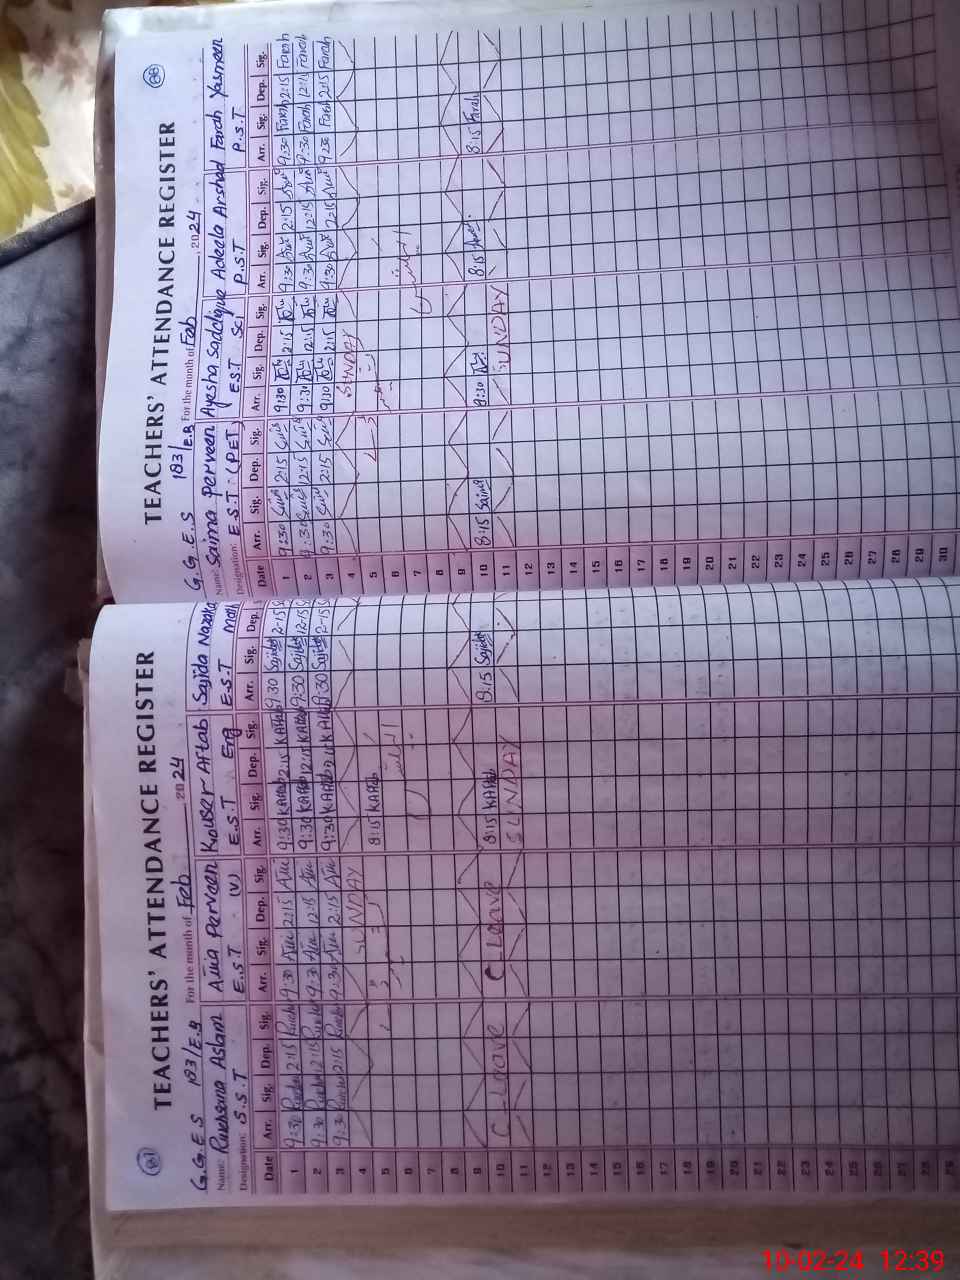 87
TEACHERS' ATTENDANCE REGISTER
G.G.E.S 183/E.B For the month of Feb 2024
Name: Rukhsana Aslam Aña Parveen Kouser Aftab Sajida Nazakat
Designation: S.S.T E.S.T (V) E.S.T Eng E.S.T Math
Date Arr. Sig. Dep. Sig. Arr. Sig. Dep. Sig. Arr. Sig. Dep. Sig. Arr. Sig. Dep.
1 9:30 2:15 9:30 2:15 9:30 KAftab 2:15 KAftab 9:30 Sajida 2-15
2 9:30 12:15 9:30 12:15 9:30 KAftab 12:15 KAftab 9:30 Sajida 12-15
3 9:30 2:15 9:30 2:15 9:30 KAftab 2:15 KAftab 9:30 Sajida 2-15
4 SUNDAY
5 8:15 KAftab
6
7
8
9
10 C-Leave C-Leave 8:15 KAftab 8:15 Sajida
11 SUNDAY
12
13
14
15
16
17
18
19
20
21
22
23
24
25
26
27
28
29
88
TEACHERS' ATTENDANCE REGISTER
G.G.E.S 183/E.B For the month of Feb, 2024
Name: Saima Perveen Ayesha Saddique Adeela Arshad Farah Yasmeen
Designation: E.S.T.(PET) E.S.T Sci P.S.T P.S.T
Date Arr. Sig. Dep. Sig. Arr. Sig. Dep. Sig. Arr. Sig. Dep. Sig. Arr. Sig. Dep. Sig.
1 9:30 2:15 9:30 2:15 9:30 2:15 9:30 Farah 2:15 Farah
2 9:30 12:15 9:30 12:15 9:30 12:15 9:30 Farah 12:15 Farah
3 9:30 2:15 9:30 2:15 9:30 2:15 9:30 Farah 2:15 Farah
4 SUNDAY
5
6
7
8
9
10 8:15 Saima 9:30 8:15 8:15 Farah
11 SUNDAY
12
13
14
15
16
17
18
19
20
21
22
23
24
25
26
27
28
29
30
10-02-24 12:39